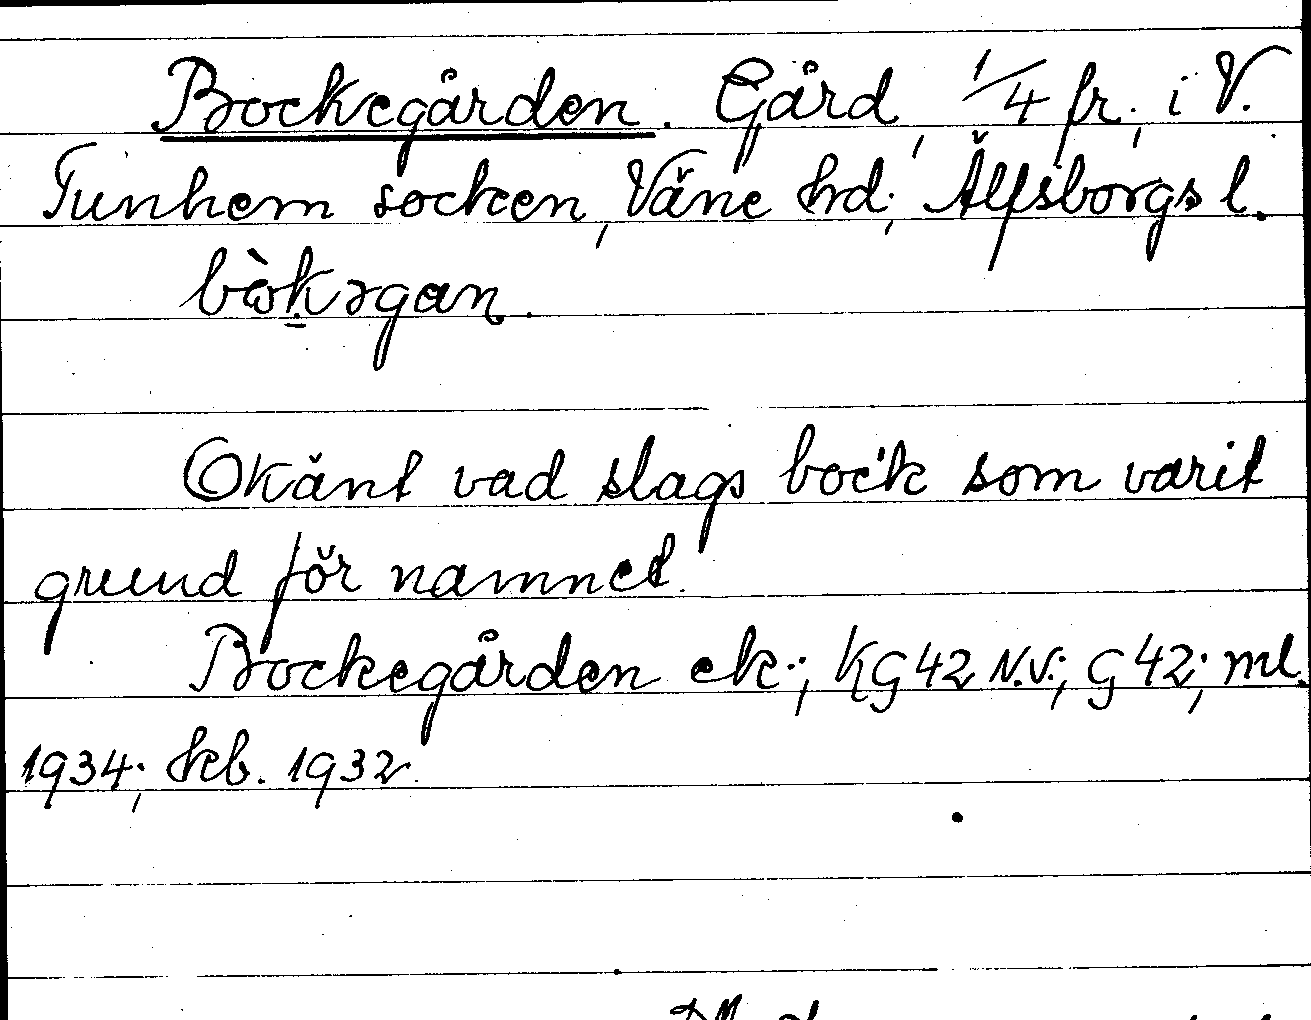 Bockegården. Gård, 1/4 fr., i V.
Tunhem socken, Väne hd., Älfsborgs l.
bòkəgan.
Okänt vad slags bock som varit
grund för namnet.
Bockegården ek.; KG 42 N.V.; G 42; ml.
1934; hkb. 1932.